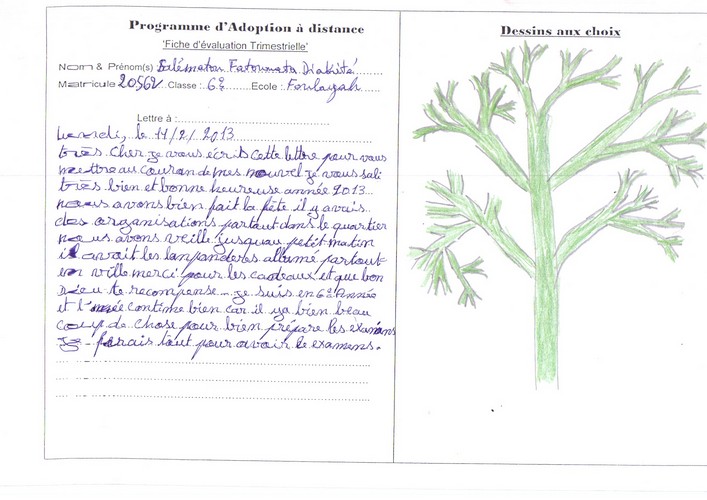 Programme d'Adoption à distance
'Fiche d'évaluation Trimestrielle'
Nom & Prénom(s) Salématou Fatoumata Diakité
Matricule 20562 Classe : 6e Ecole : Foulayah
Lettre à :
le 11/2/2013
très cher je vous écrits cette lettre pour vous
mettre au courande mes nouvel je vous sali
très bien et bonne heureuse année 2013
nous avons bien fait la fête il y avais
des organisations partout dans le quartier
nous avons veille jusquau petit matin
il avait les lampaderes allumé partout
en ville merci pour les cadeaux et que bon
Dieu te recompense je suis en 6e Année
et l'année contime bien car il ya bien beau
coup de chose pour bien prépare les examens
je ferais tout pour avoir le examens.
Dessins aux choix